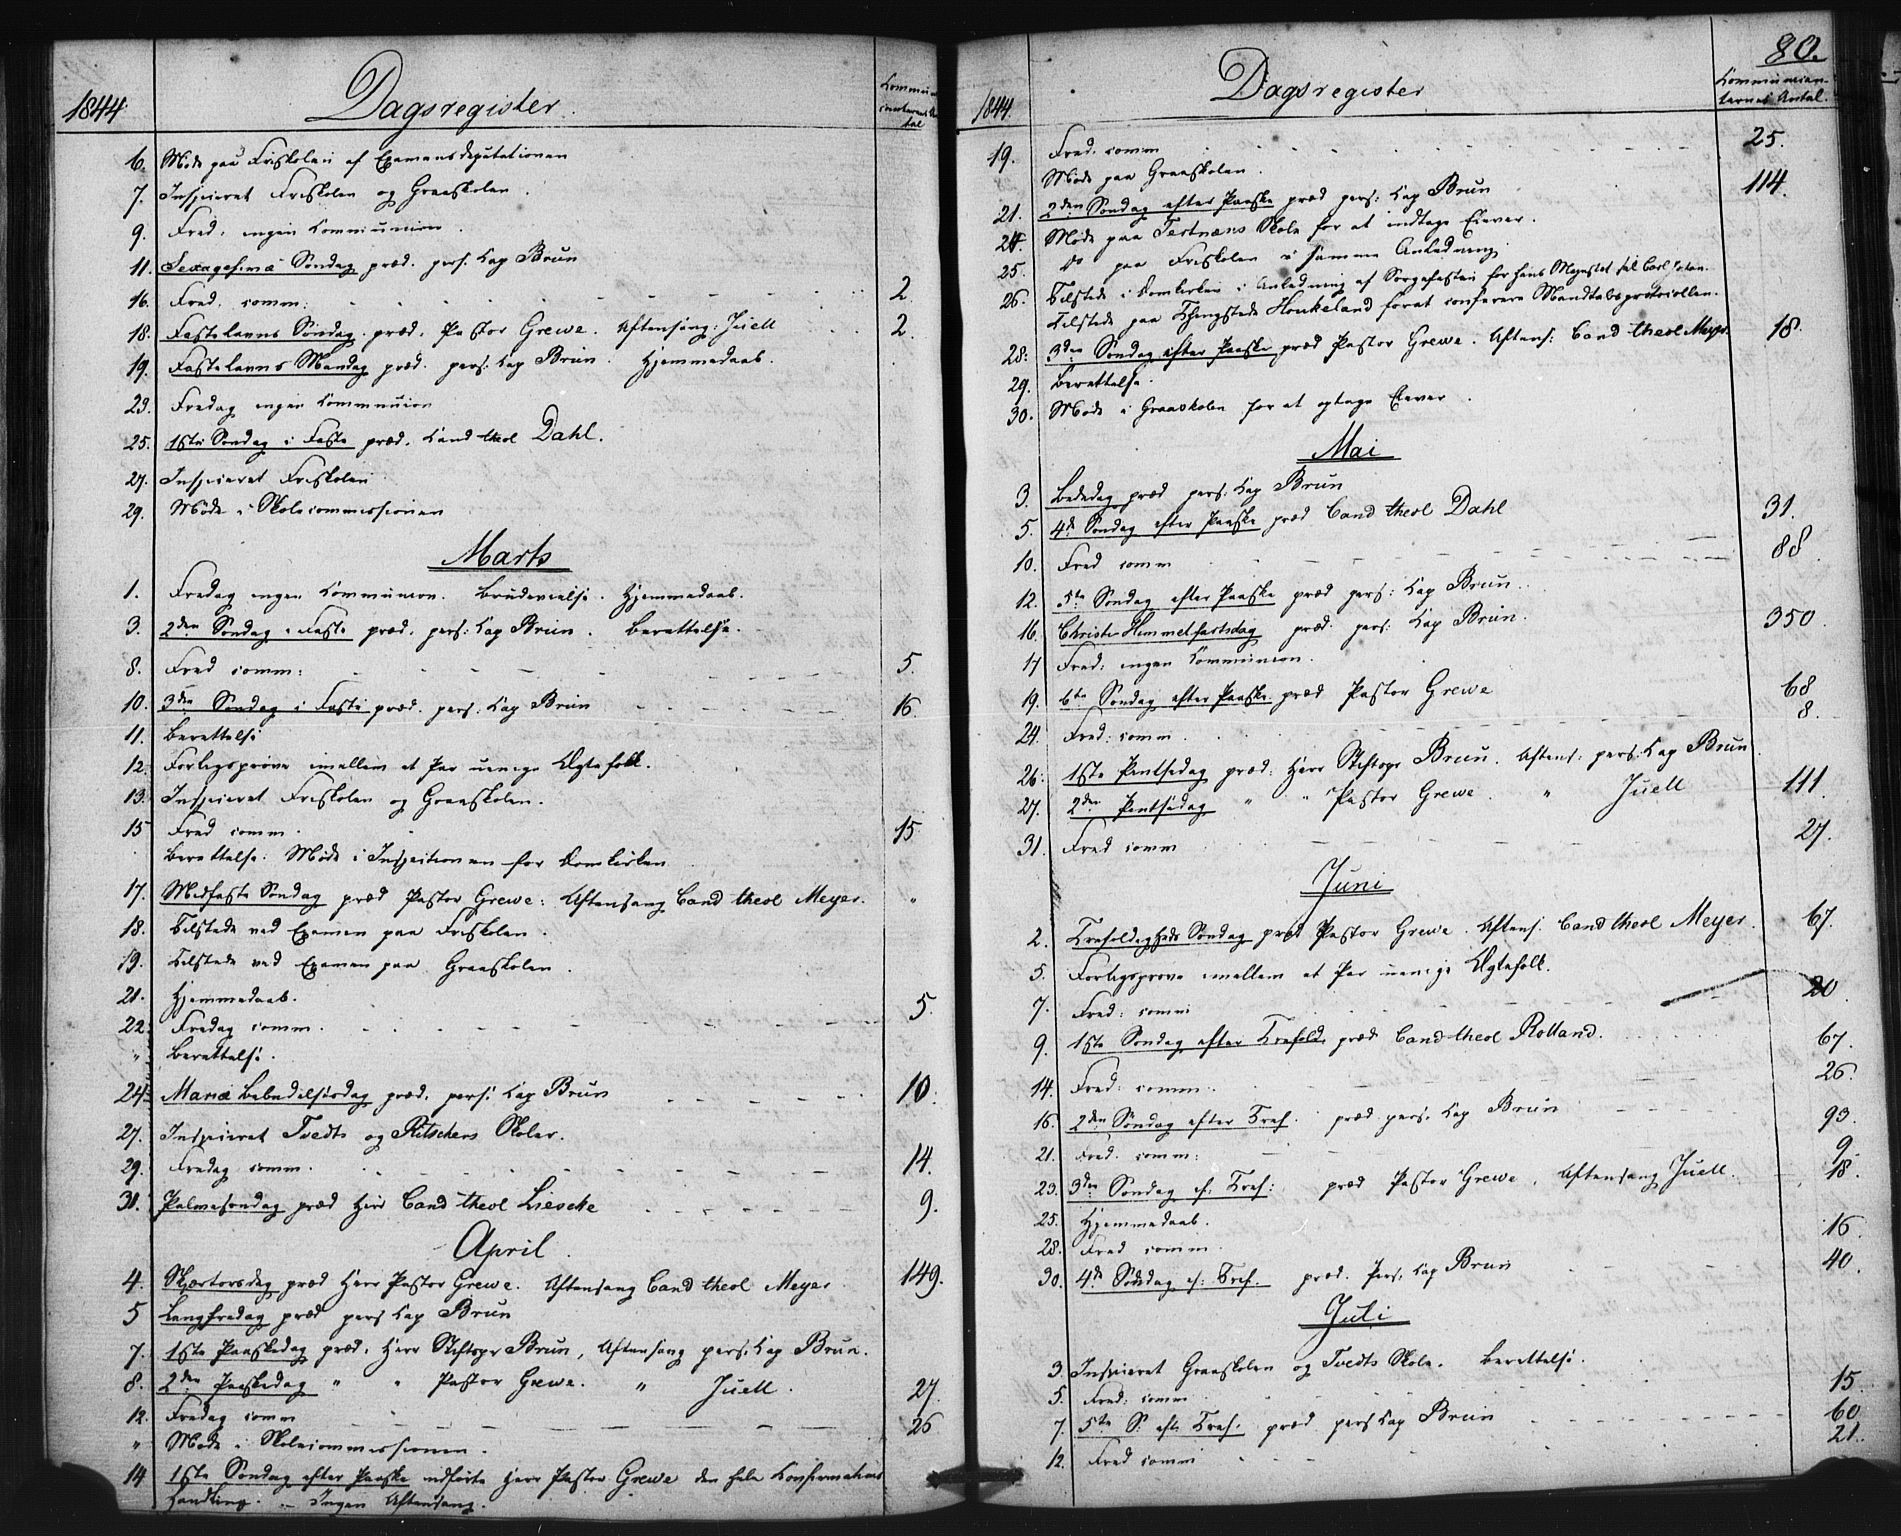 1844. Dagsregister. Kommuni-
canternes An-
tal
6. Møde paa Friskolen af Examensdeputationen
7. Inspiceret Friskolen og Graaskolen.
9. Fred: ingen Kommunion.
11. Sexagesimæ Søndag præd. pers. Cap Brun
16. Fred. comm: 2.
18. Fastelavns Søndag præd. Pastor Grewe. Aftensang: Juell 2.
19. Fastelavns Mandag præd. pers: Cap Brun. Hjemmedaab.
23. Fredag ingen Kommunion
25. 1ste Søndag i Faste præd. Cand theol Dahl.
27. Inspiceret Friskolen
29. Møde i Skolecommissionen
Marts
1. Fredag ingen Kommunion. Brudevielse. Hjemmedaab.
3. 2den Søndag i Faste præd. pers: Cap Brun. Berettelse.
8. Fred comm: 5.
10. 3den Søndag i Faste præd. pers: Cap Brun 16.
11. Berettelse
12. Forligsprøve imellem et Par uenige Ægtefolk.
13. Inspiceret Friskolen og Graaskolen.
15 Fred comm. 15.
Berettelse. Møde i Inspectionen for Domkirken
17. Midfaste Søndag præd Pastor Grewe: Aftensang Cand theol Meyer. "
18. Tilstede ved Examen paa Friskolen.
19. Tilstede ved Examen paa Graaskolen.
21. Hjemmedaab.
22. Fredag comm. 5.
" Berettelse.
24. Mariæ Bebudelsesdag præd. pers: Cap Brun 10.
27. Inspiceret Tvedts og Ritschers Skoler.
29. Fredag comm. 14.
31. Palmesøndag præd Herr Cand theol Liesche 9.
April.
4. Skjærtorsdag præd Herr Pastor Grewe. Aftensang Cand theol Meyer 149.
5 Langfredag præd pers Cap Brun
7. 1ste Paaskedag præd. Herr Stiftspr Brun, Aftensang pers: Cap Brun.
8. 2den Paaskedag " " Pastor Grewe. " Juell. 27.
12. Fredag comm 26
" Møde i Skolecommissionen.
14 1ste Søndag efter Paaske udførte Herr Pastor Grewe den hele Konfirmations
Handling. – Ingen Aftensang.
80.
1844. Dagsregister Kommunican-
ternes Antal.
19. Fred. comm 25.
Møde paa Graaskolen.
21. 2den Søndag efter Paaske præd pers: Cap Brun 114.
24. Møde paa Skole for at indtage Elever.
25. do paa Friskolen i samme Anledning
26. Tilstede i Domkirken i Anledning af Sørgefesten for hans Majestet sal Carl Johan.
Tilstede paa Haukeland forat conferere Mandtalsprotocollen.
28. 3den Søndag efter Paaske præd Pastor Grewe. Aftens: Cand theol Meyer 18.
29. Berettelse.
30. Møde i Graaskolen for at optage Elever.
Mai
3. Bededag præd pers: Cap Brun
5. 4de Søndag efter Paaske præd Cand theol Dahl 31.
10. Fred comm 88.
12. 5te Søndag efter Paaske præd pers: Cap Brun.
16. Christi Himmelfartsdag præd. pers: Cap Brun. 350.
17 Fred: ingen Kommunion.
19. 6te Søndag efter Paaske præd Pastor Grewe 68
24. Fred: comm. 8.
26. 1ste Pintsedag præd. Herr Stiftspr Brun. Aftens: pers: Cap Brun
27. 2den Pintsedag " " Pastor Grewe. " Juell 111.
31. Fred comm 27.
Juni
2. Trefoldigheds Søndag præd Pastor Grewe. Aftens. Cand theol Meyer. 67.
5. Forligsprøve imellem et Par uenige Ægtefolk.
7. Fred: comm: 20.
9. 1ste Søndag efter Trefold. præd Cand theol Rolland. 67.
14. Fred: comm. 26.
16. 2den Søndag efter Tref. præd pers. Cap Brun 93.
21. Fred. comm: 9.
23. 3die Søndag ef: Tref: præd Pastor Grewe, Aftensang Juell. 18.
25. Hjemmedaab.
28. Fred comm. 16.
30. 4de Søndag ef: Tref. præd. Pers. Cap Brun 40.
Juli
3. Inspiceret Graaskolen og Tvedts Skole. Berettelse.
5. Fred: comm. 15.
7. 5te S. eft. Tref. præd pers Cap Brun 60
12. Fred comm 21.